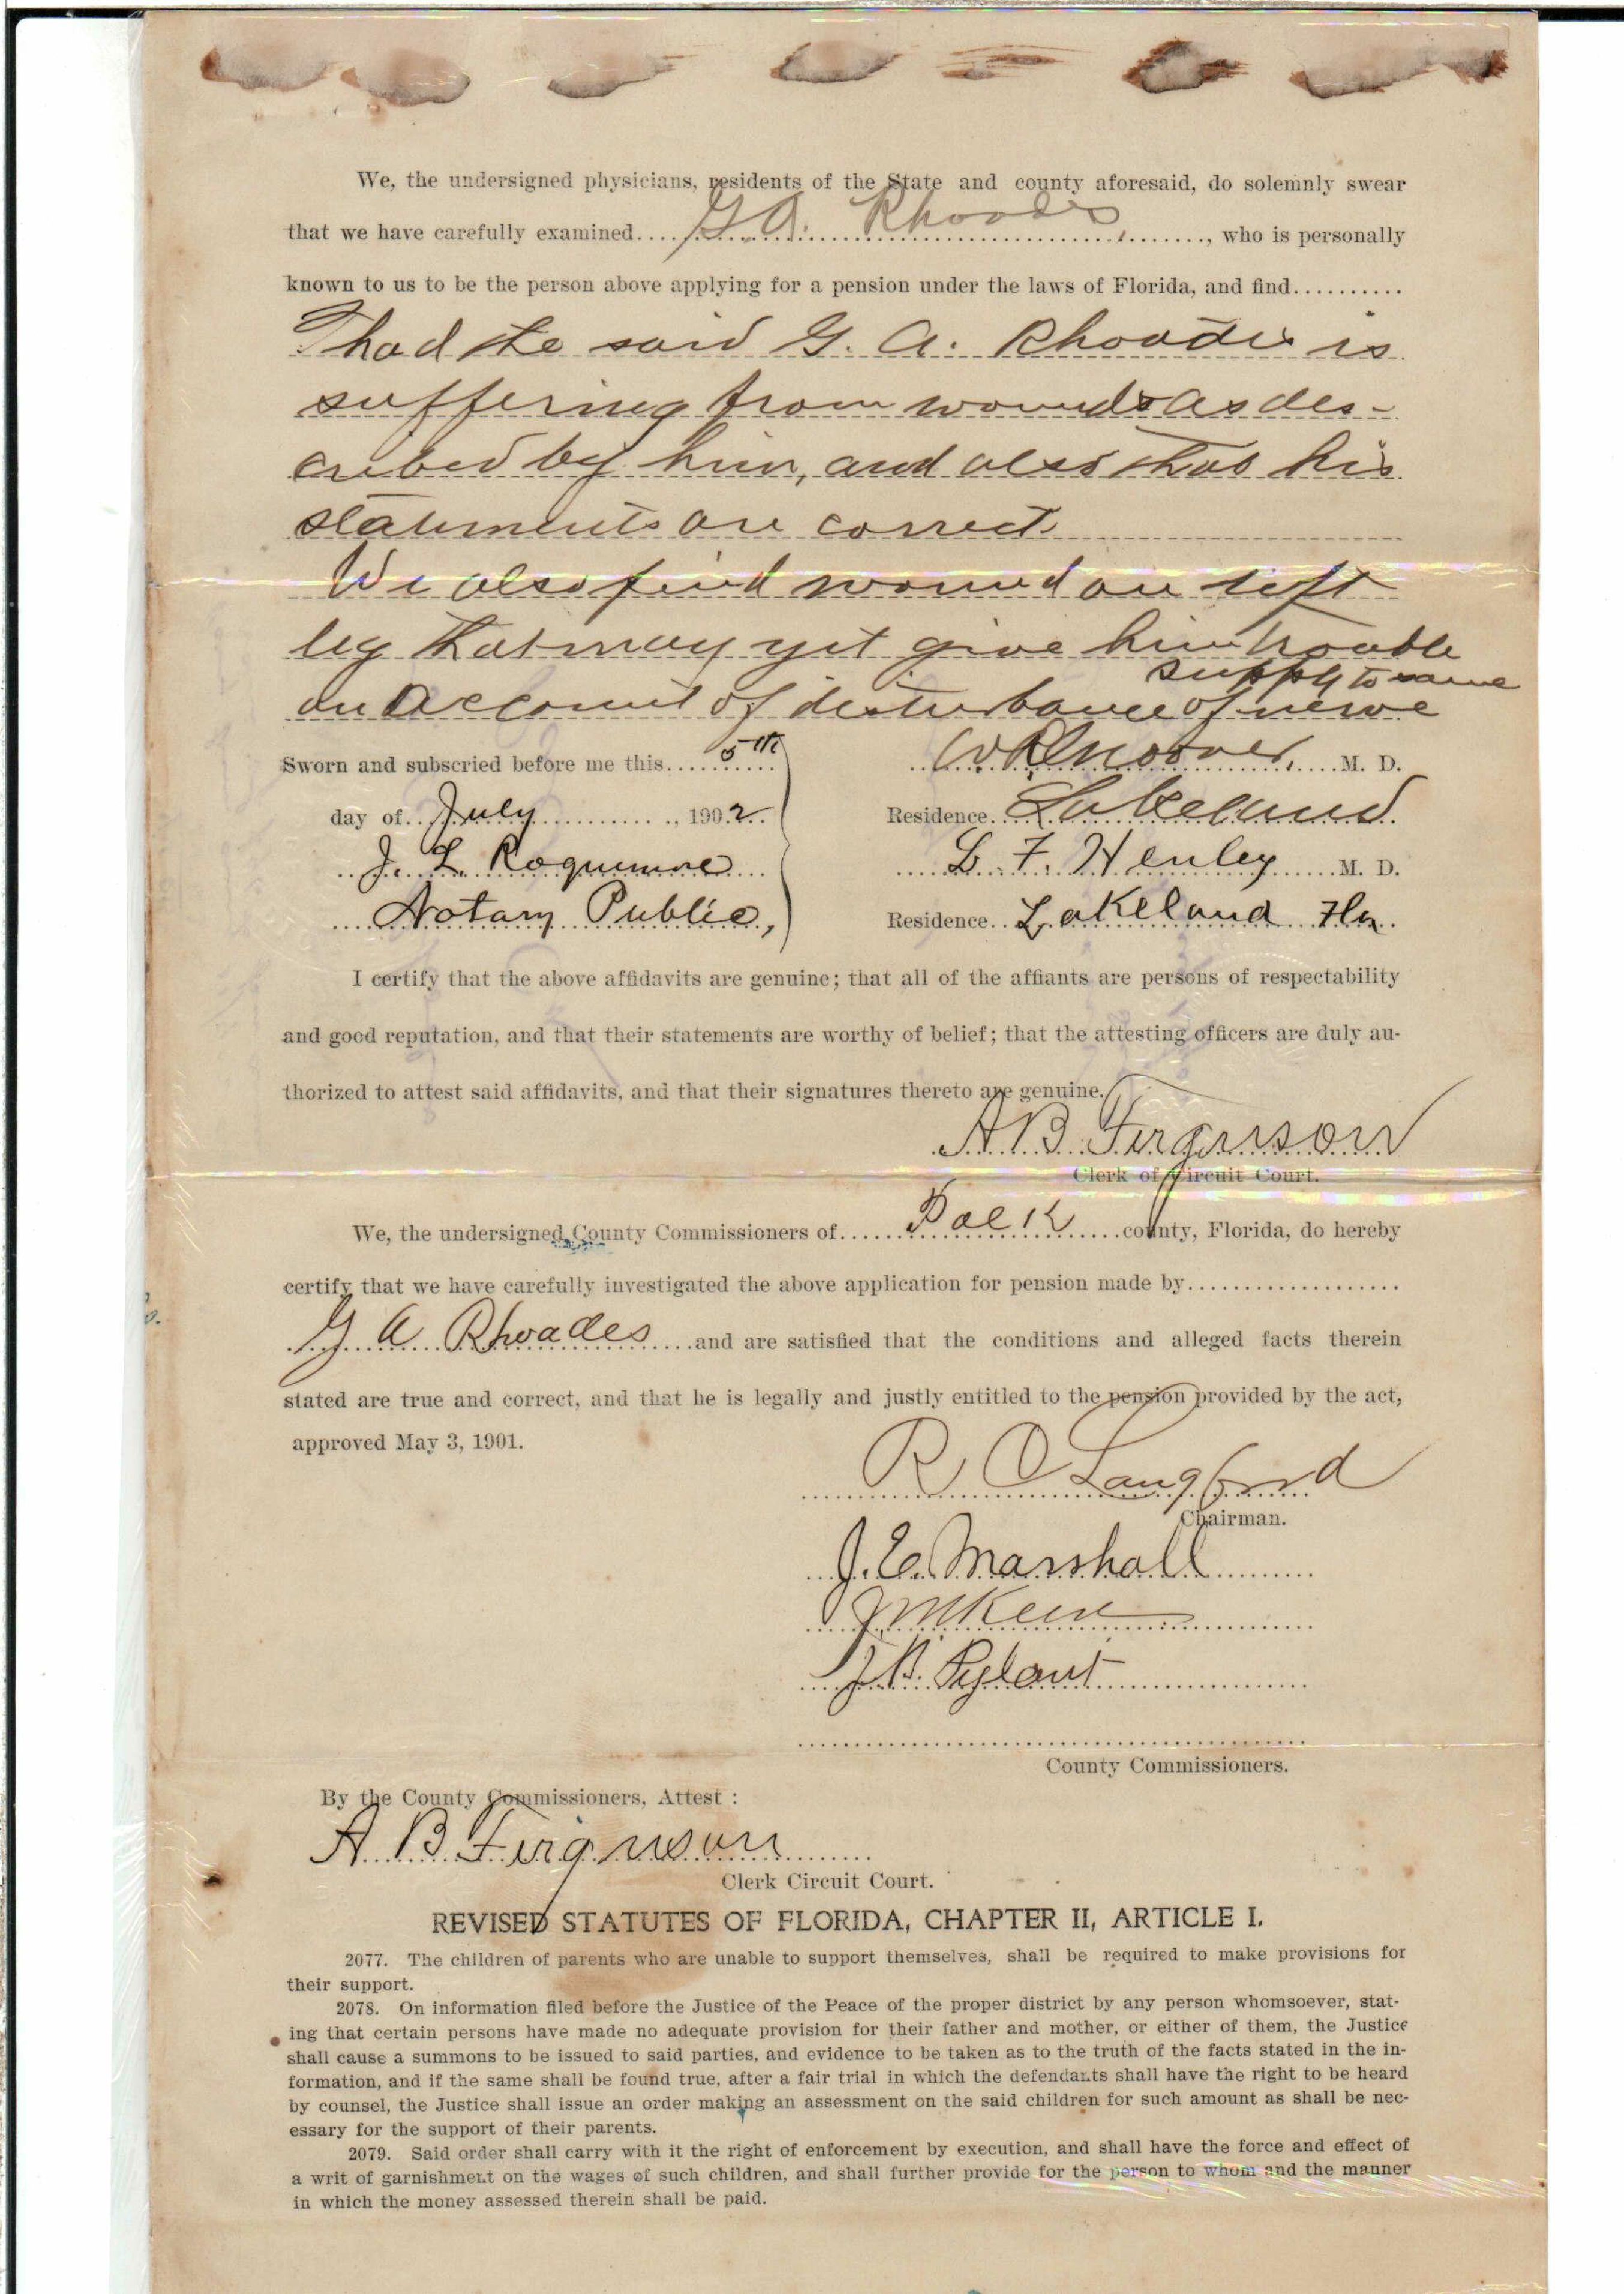 We, the undersigned physicians, residents of the State and county aforesaid, do solemnly swear
that we have carefully examined.... G. A. Rhoades ........, who is personally
known to us to be the person above applying for a pension under the laws of Florida, and find..........
Thad the said G. A. Rhoades is
suffering from wounds as des-
cribed by him, and also that his
statements are correct.
We also find wound on left
leg that may yet give him trouble
supply to same
on account of disturbance of nerve
Sworn and subscried before me this.... 5th
day of.. July ..........., 1902..
J. L. Roquemore
Notary Public,
W R Groover, M. D.
Residence. Lakeland
L. F. Henley M. D.
Residence.. Lakeland Fla.
I certify that the above affidavits are genuine; that all of the affiants are persons of respectability
and good reputation, and that their statements are worthy of belief; that the attesting officers are duly au-
thorized to attest said affidavits, and that their signatures thereto are genuine.
A B Ferguson
Clerk of Circuit Court.
We, the undersigned County Commissioners of...... Polk ......county, Florida, do hereby
certify that we have carefully investigated the above application for pension made by....................
G A Rhoades ....and are satisfied that the conditions and alleged facts therein
stated are true and correct, and that he is legally and justly entitled to the pension provided by the act,
approved May 3, 1901.
R C Langford
Chairman.
J. E. Marshall
J M Keen
J. B. Pylant
County Commissioners.
By the County Commissioners, Attest :
A B Ferguson
Clerk Circuit Court.
REVISED STATUTES OF FLORIDA, CHAPTER II, ARTICLE I.
2077. The children of parents who are unable to support themselves, shall be required to make provisions for
their support.
2078. On information filed before the Justice of the Peace of the proper district by any person whomsoever, stat-
ing that certain persons have made no adequate provision for their father and mother, or either of them, the Justice
shall cause a summons to be issued to said parties, and evidence to be taken as to the truth of the facts stated in the in-
formation, and if the same shall be found true, after a fair trial in which the defendants shall have the right to be heard
by counsel, the Justice shall issue an order making an assessment on the said children for such amount as shall be nec-
essary for the support of their parents.
2079. Said order shall carry with it the right of enforcement by execution, and shall have the force and effect of
a writ of garnishment on the wages of such children, and shall further provide for the person to whom and the manner
in which the money assessed therein shall be paid.